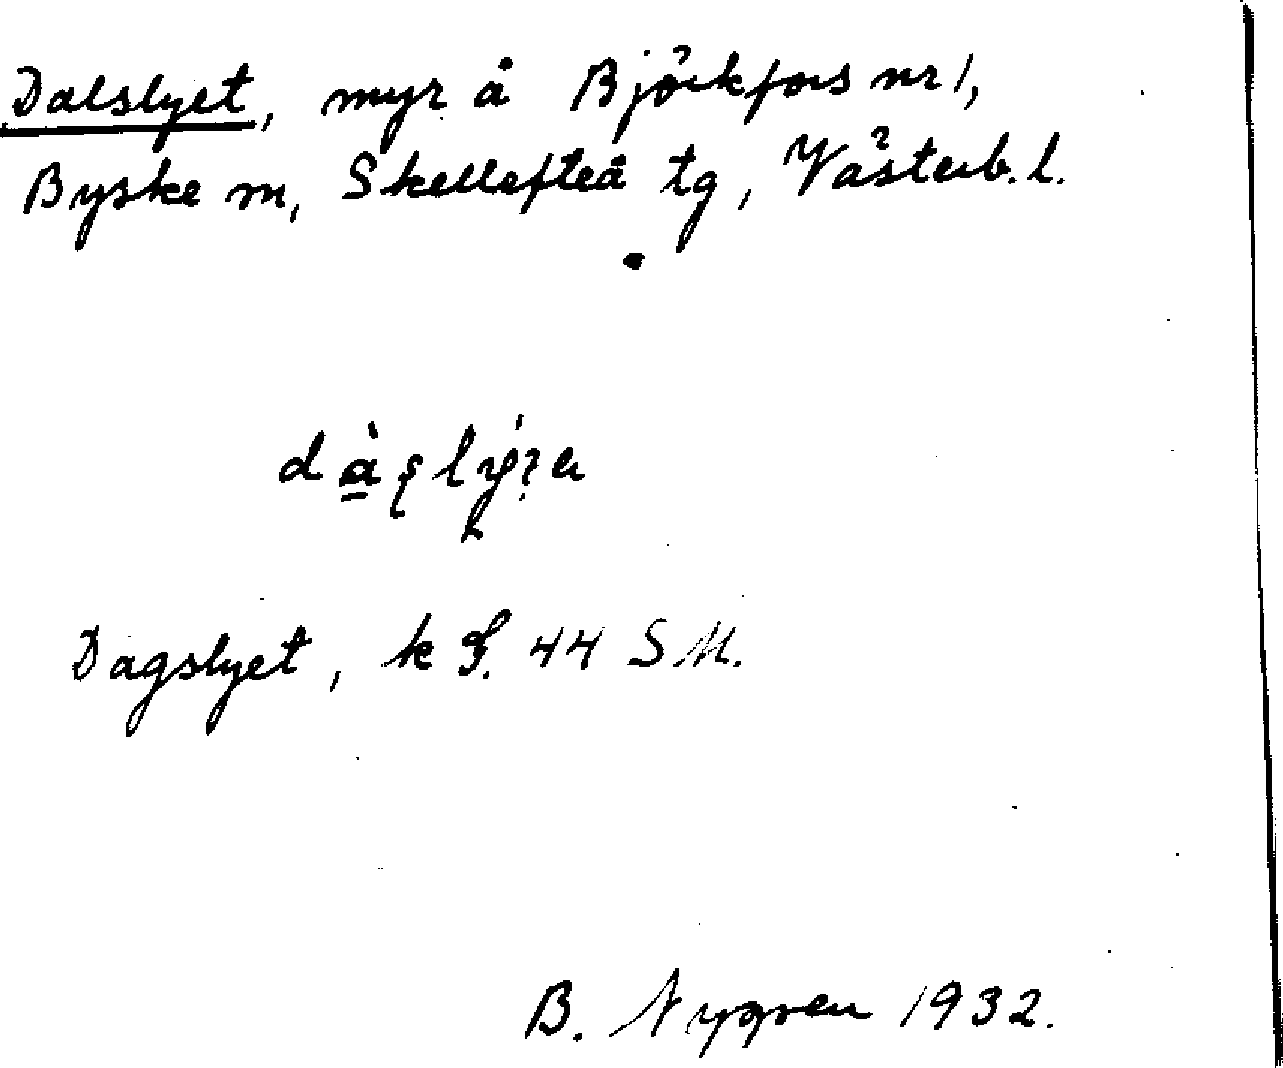 Dalslyet, myr å Björkfors nr 1,
Byske sn, Skellefteå tg, Västerb. l.
Dagslyet, k S. 44 SM.
B. Nygren 1932.